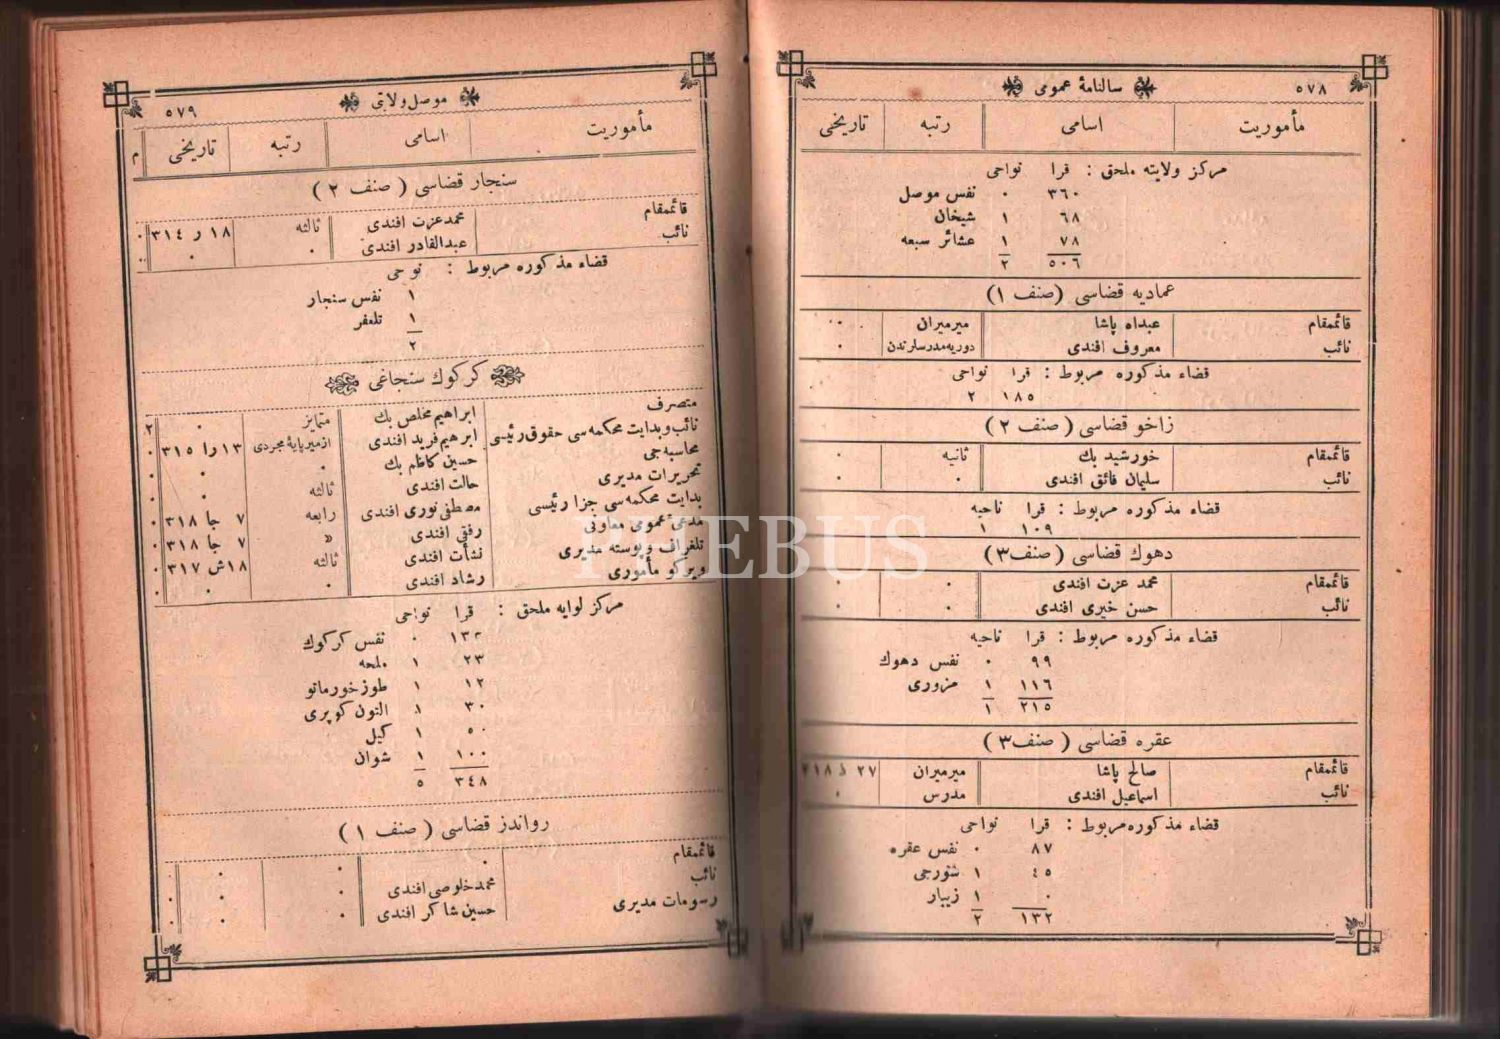 ٥٧٨ سالنامهٔ عمومی
مأموریت اسامی رتبه تاریخی
مركز ولایته ملحق : قرا نواحی
٣٦٠ ٠ نفس موصل
٦٨ ١ شیخان
٧٨ ١ عشائر سبعه
٥٠٦ ٢
عمادیه قضاسی (صنف ١)
قائممقام عبداه پاشا میرمیران ٠
نائب معروف افندی دوریه مدرسلرندن ٠
قضاء مذكوره مربوط : قرا نواحی
١٨٥ ٢
زاخو قضاسی (صنف ٢)
قائممقام خورشید بك ثانیه ٠
نائب سلیمان فائق افندی ٠ ٠
قضاء مذكوره مربوط : قرا ناحیه
١٠٩ ١
دهوك قضاسی (صنف ٣)
قائممقام محمد عزت افندی ٠ ٠
نائب حسن خیری افندی ٠ ٠
قضاء مذكوره مربوط : قرا ناحیه
٩٩ ٠ نفس دهوك
١١٦ ١ مزوری
٢١٥ ١
عقره قضاسی (صنف ٣)
قائممقام صالح پاشا میرمیران ٢٧
نائب اسماعیل افندی مدرس ٠
قضاء مذكوره مربوط : قرا نواحی
٨٧ ٠ نفس عقره
٤٥ ١ شورجی
٠ ١ زیبار
١٣٢ ٢
موصل ولایتی ٥٧٩
مأموریت اسامی رتبه تاریخی م
سنجار قضاسی (صنف ٢)
قائممقام محمد عزت افندی ثالثه ١٨ ر ٣١٤ ٠
نائب عبدالقادر افندی ٠ ٠ ٠
قضاء مذكوره مربوط : نواحی
١ نفس سنجار
١ تلعفر
٢
كركوك سنجاغی
متصرف ابراهیم مخلص بك متمایز ٠ ٢
نائب و بدایت محكمه سی حقوق رئیسی ابرهیم فرید افندی ازمیر پایهٔ مجردی ١٣ را ٣١٥ ٠
محاسبه جی حسین كاظم بك ٠ ٠ ٠
تحریرات مدیری حالت افندی ثالثه ٠ ٠
بدایت محكمه سی جزا رئیسی مصطفی نوری افندی رابعه ٧ جا ٣١٨ ٠
مدعئ عمومی معاونی رفقی افندی » ٧ جا ٣١٨ ٠
تلغراف و پوسته مدیری نشأت افندی ثالثه ١٨ ش ٣١٧ ٠
ویركو مأموری رشاد افندی ٠ ٠ ٠
مركز لوایه ملحق : قرا نواحی
١٣٣ ٠ نفس كركوك
٢٣ ١ ملحه
١٢ ١ طوز خورماتو
٣٠ ١ التون كوپری
٥٠ ١ كیل
١٠٠ ١ شوان
٣٤٨ ٥
رواندز قضاسی (صنف ١)
قائممقام ٠ ٠ ٠ ٠
نائب محمد خلوصی افندی ٠ ٠ ٠
رسومات مدیری حسین شاكر افندی ٠ ٠ ٠
PHEBUS